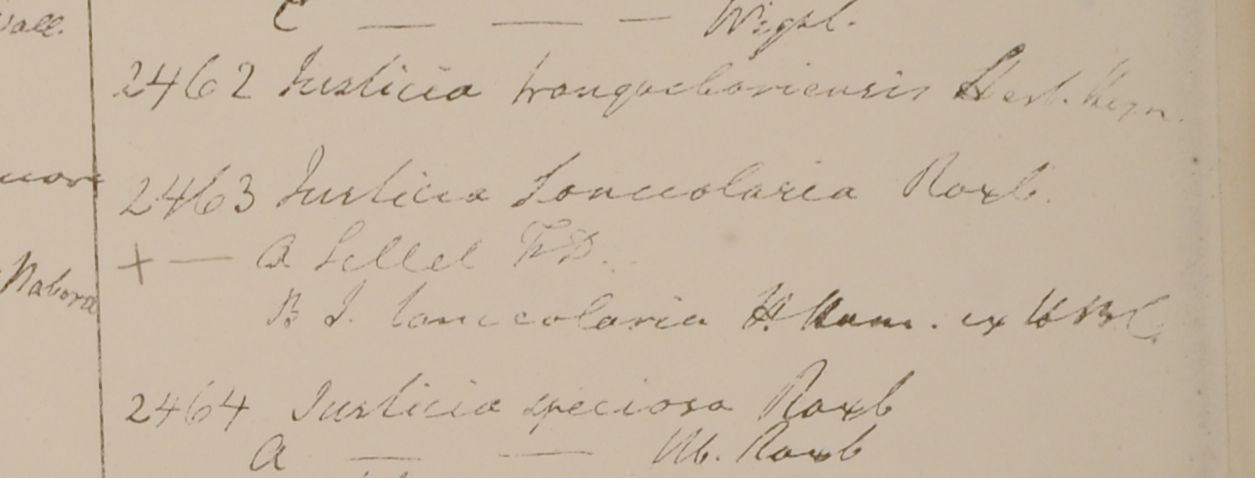 Wall.
C — — — Wight.
2462 Justicia tranquebariensis Herb. Heyn.
2463 Justicia lanceolaria Roxb.
+ — a Sillet F.D.
Nabord
B J. lanceolaria H. Ham. ex H.B.C.
2464 Justicia speciosa Roxb
a — — Hb. Roxb